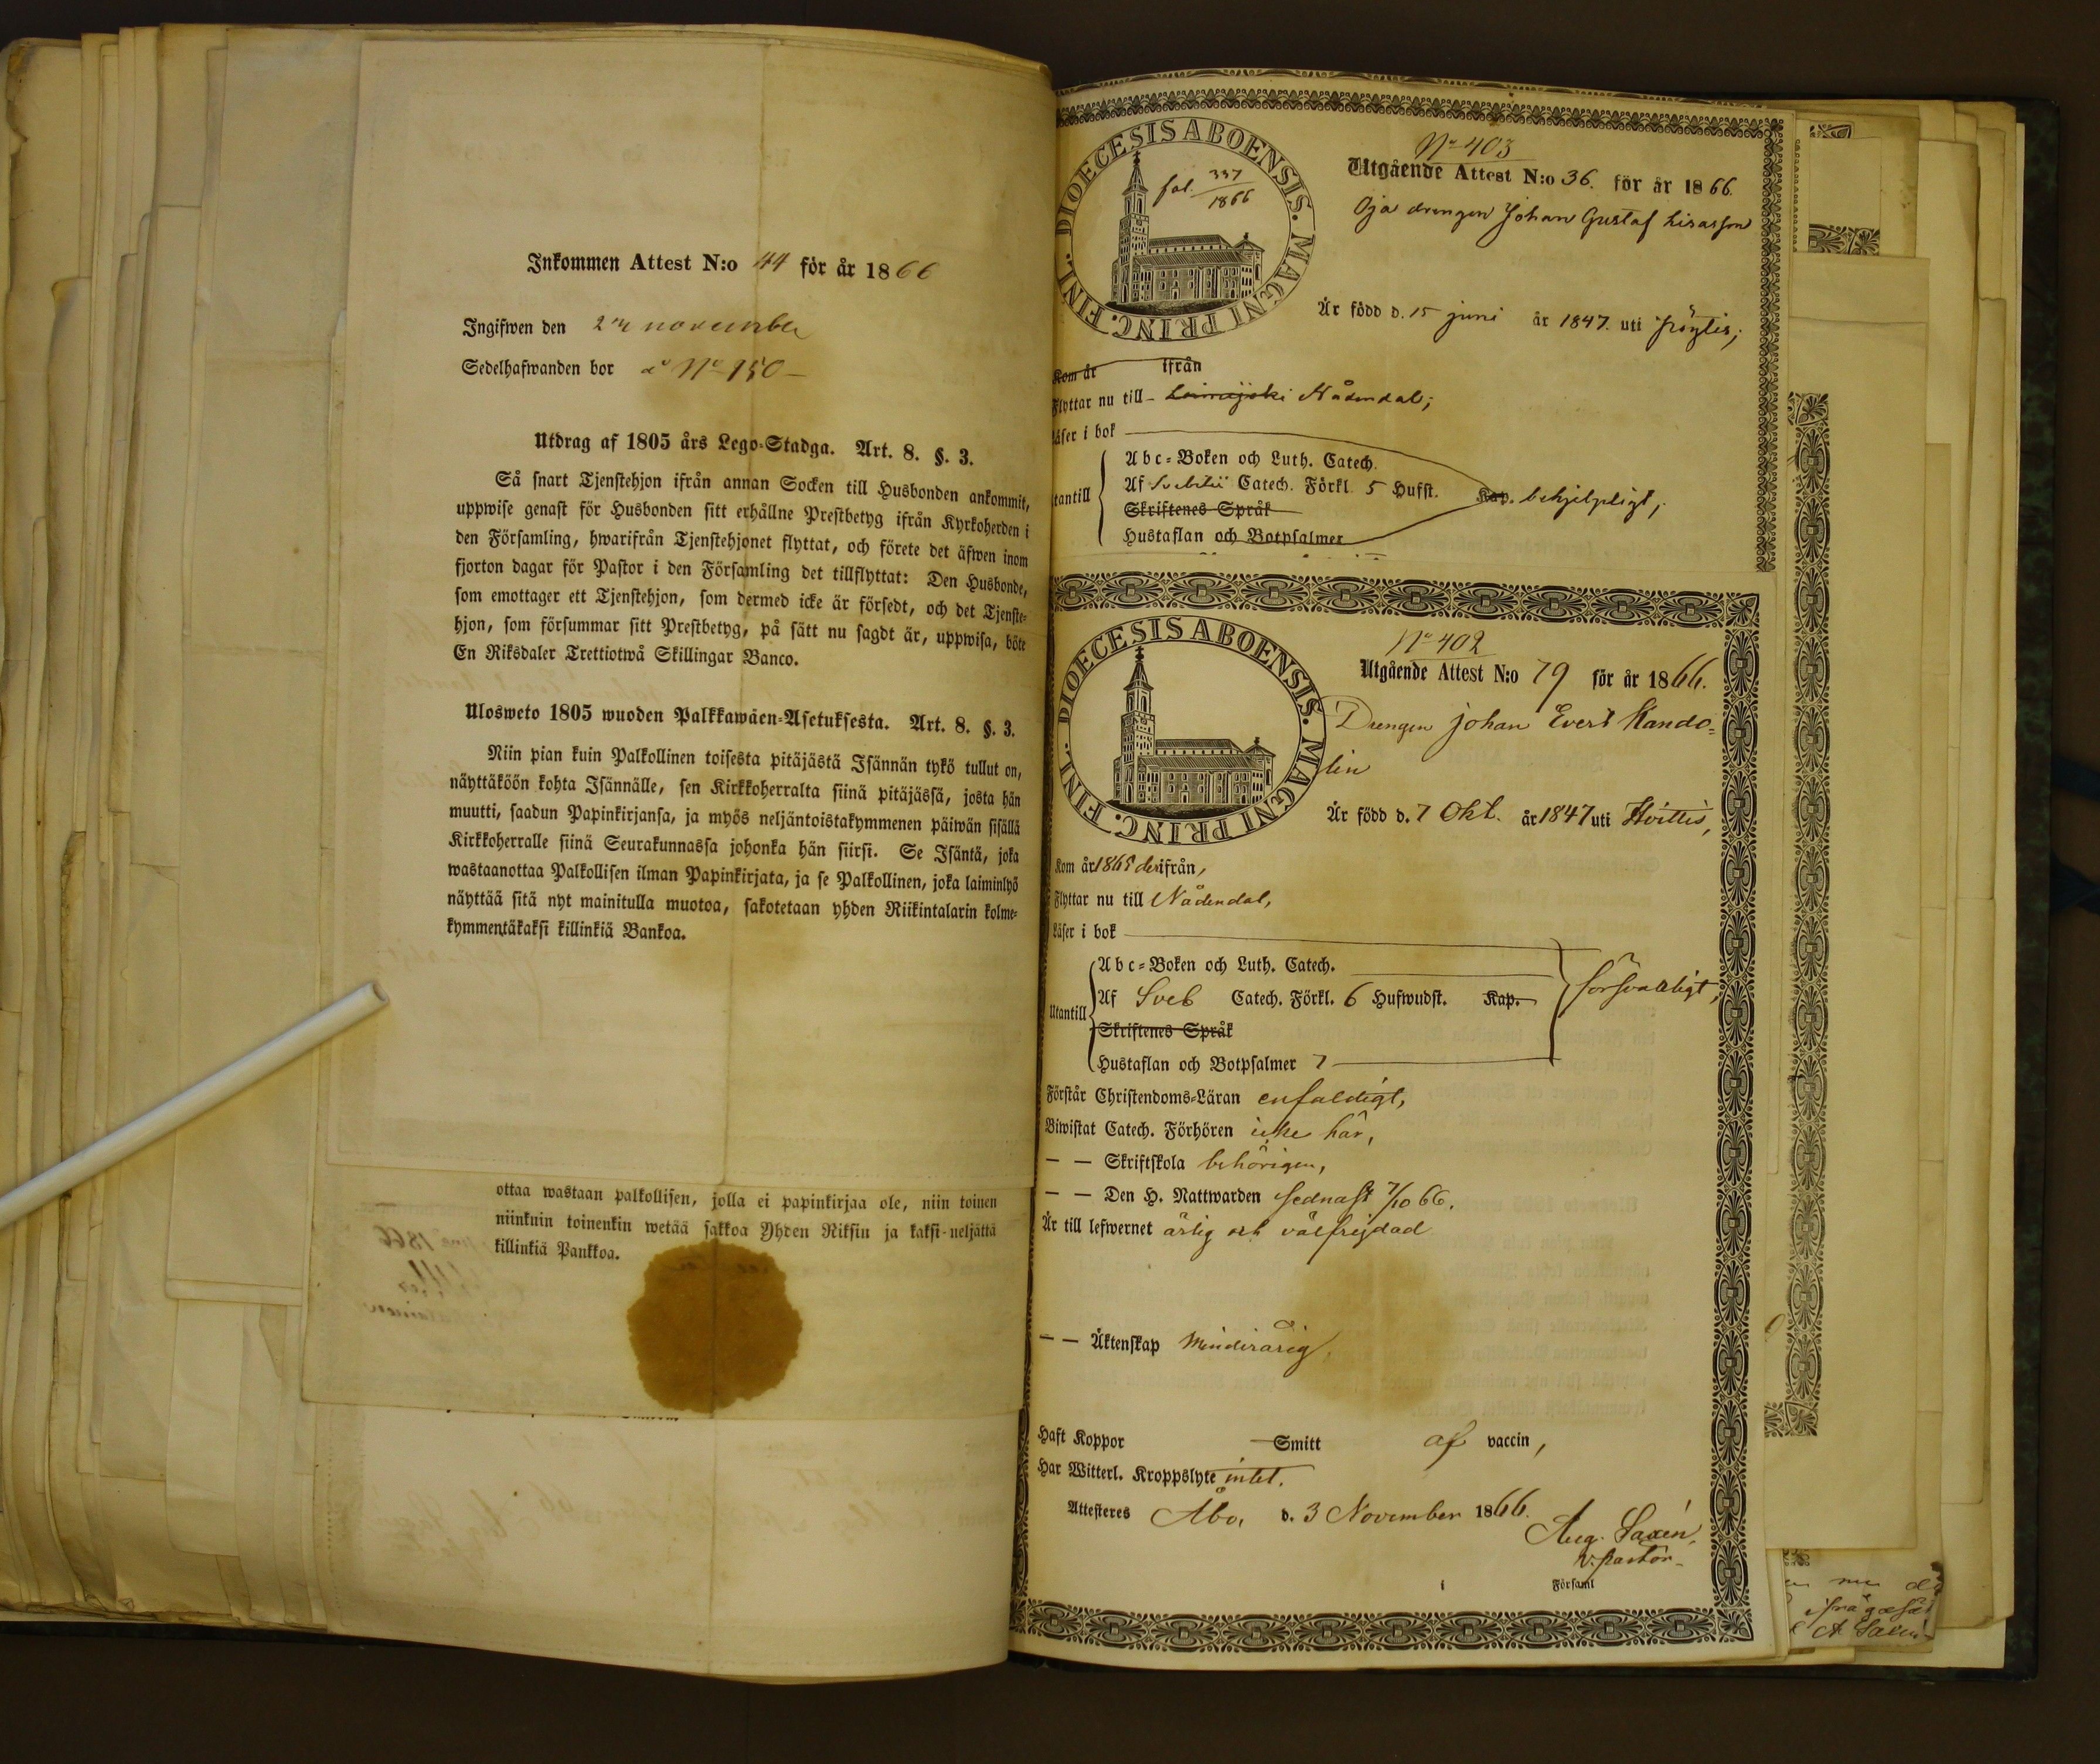 Inkommen Attest N:o 44 för år 1866
Ingifwen den november
Sedelhafwanden bor No 150
Utdrag af 1805 års Lego-Stadga. Art. 8. §. 3.
Så snart Tjenstehjon ifrån annan Socken till Husbonden ankommit,
uppwise genast för Husbonden sitt erhållne Prestbetyg ifrån Kyrkoherden i
den Församling, hwarifrån Tjenstehjonet flyttat, och förete det äfwen inom
fjorton dagar för Pastor i den Församling det tillflyttat: Den Husbonde,
som emottager ett Tjenstehjon, som dermed icke är försedt, och det Tjenste-
hjon, som försummar sitt Prestbetyg, på sätt nu sagdt är, uppwisa, böte
En Riksdaler Trettiotwå Skillingar Banco.
Ulosweto 1805 wuoden Palkkawäen-Asetuksesta. Art. 8. §. 3.
Niin pian kuin Palkollinen toisesta pitäjästä Isännän tykö tullut on,
näyttäköön kohta Isännälle, sen Kirkkoherralta siinä pitäjässä, josta hän
muutti, saadun Papinkirjansa, ja myös neljäntoistakymmenen päiwän sisällä
Kirkkoherralle siinä Seurakunnassa johonka hän siirsi. Se Isäntä, joka
wastaanottaa Palkollisen ilman Papinkirjata, ja se Palkollinen, joka laiminlyö
näyttää sitä nyt mainitulla muotoa, sakotetaan yhden Riikintalarin kolme-
kymmentäkaksi killinkiä Bankoa.
ottaa wastaan palkollisen, jolla ei papinkirjaa ole, niin toinen
niinkuin toinenkin wetää sakkoa Yhden Riksin ja kaksi-neljättä
killinkiä Pankkoa.
DIOECESIS ABOENSIS. MAGNI PRINC. FINL.
fol. 337
1866
No 403
Utgående Attest N:o 36. för år 1866.
Oja drengen Johan Gustaf Lisasson
Är född d. 15 juni år 1847. uti Pöytis,
Kom år ifrån
Flyttar nu till Nådendal;
Läser i bok
Abc-Boken och Luth. Catech.
Utantill Af Svebilii Catech. Förkl. 5 Hufst. Kap. behjelpligt,
Skriftenes Språk
Hustaflan och Botpsalmer
DIOECESIS ABOENSIS. MAGNI PRINC. FINL.
No 402
Utgående Attest N:o 79 för år 1866.
Drengen Johan Evert Kando=
lin
Är född d. 7 Okt. år 1847 uti Hvittis,
Kom år 1865 derifrån,
Flyttar nu till Nådendal,
Läser i bok
Abc-Boken och Luth. Catech.
Utantill Af Sveb Catech. Förkl. 6 Hufwudst. Kap. försvarligt,
Skriftenes Språk
Hustaflan och Botpsalmer 7
Förstår Christendoms-Läran enfaldigt,
Biwistat Catech. Förhören icke här,
— — Skriftskola behörigen,
— — Den H. Nattwarden sednast 7/10 66.
Är till lefwernet ärlig och välfrejdad
— — Äktenskap Minderårig
Haft Koppor Smitt af vaccin,
Har Witterl. Kroppslyte intet.
Attesteres Åbo, d. 3 November 1866.
Aug. Saxén,
v. pastor
i Församl
A Saxén